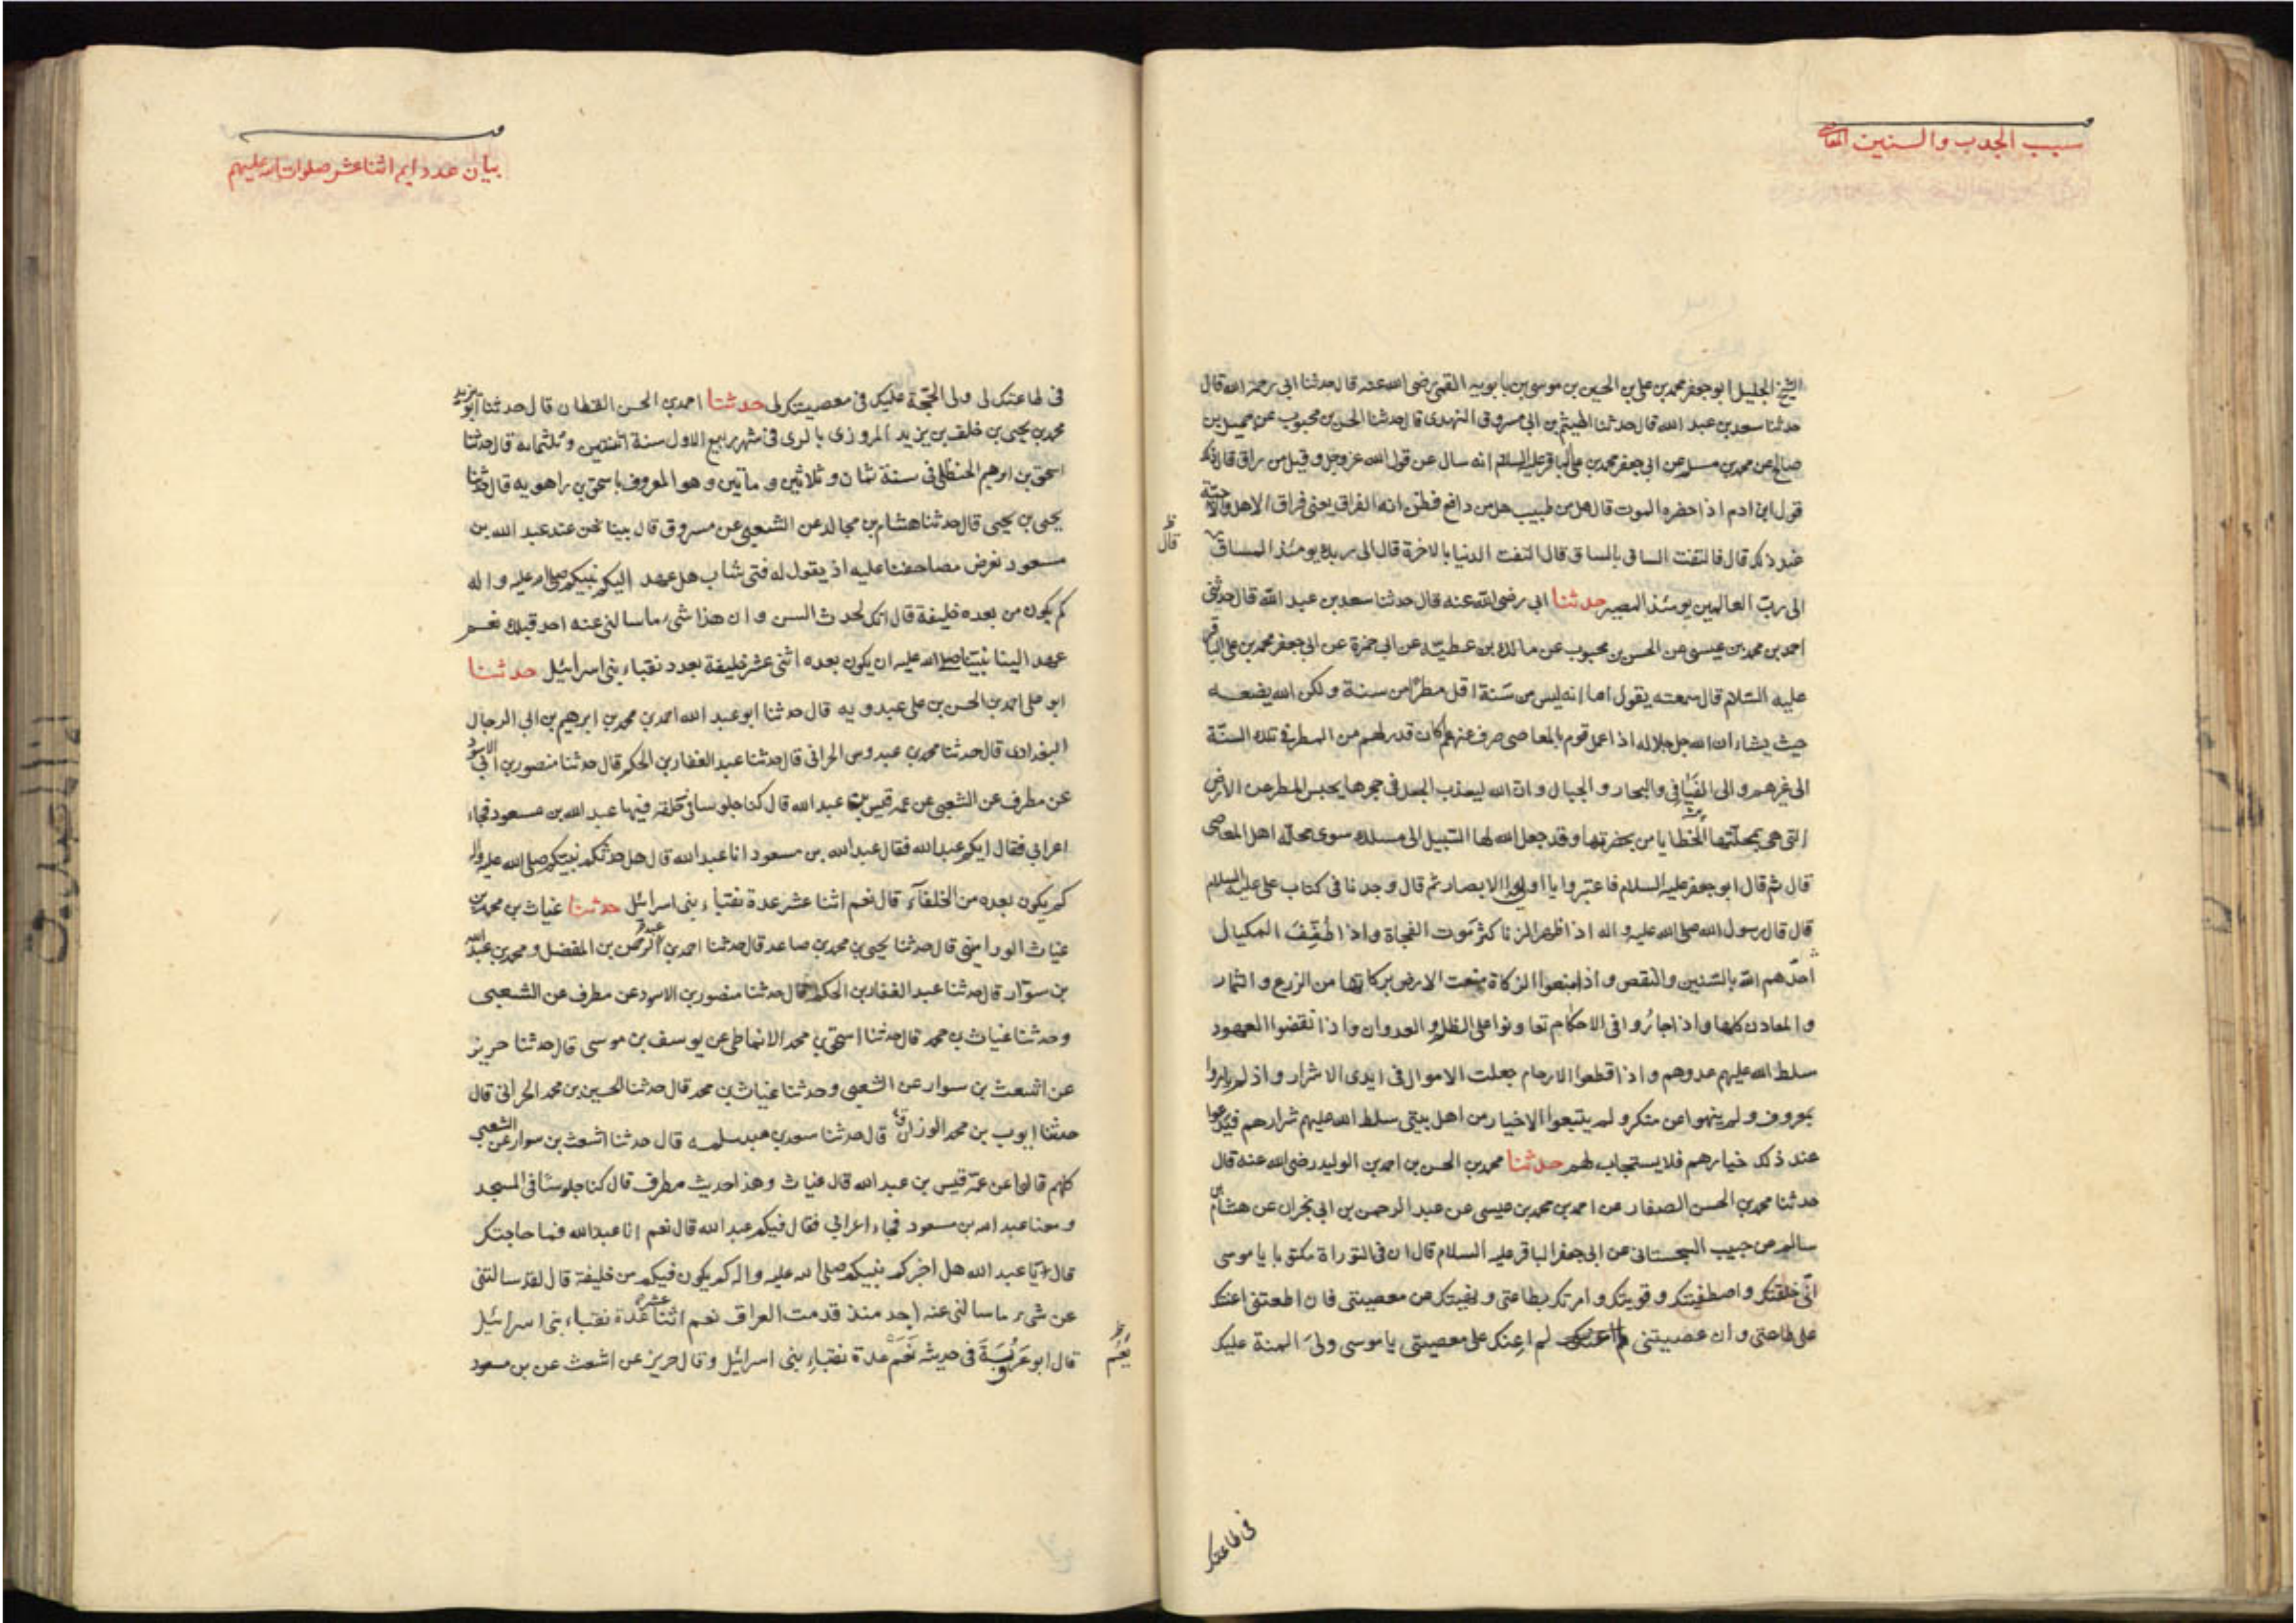 سبب الجدب والسنين
الشيخ الجليل ابو جعفر محمد بن علي بن الحسين بن موسى بن بابويه القمي رضى الله عنه قال حدثنا ابى رحمه الله قال
حدثنا سعد بن عبد الله قال حدثنا الهيثم بن ابى مسروق النهدى قال حدثنا الحسن بن محبوب عن جميل بن
صالح عن محمد بن مسلم عن ابى جعفر محمد بن على الباقر عليه السلام انه سال عن قول الله عز وجل وقيل من راق قال ذلك
قول ابن ادم اذا حضره الموت قال هل من طبيب هل من دافع فظن انه الفراق يعنى فراق الاهل والاحبة
قال
عند ذلك قال فالتفت الساق بالساق قال التفت الدنيا بالاخرة قال الى ربك يومئذ المساق
الى رب العالمين يومئذ المصير حدثنا ابى رضى الله عنه قال حدثنا سعد بن عبد الله قال حدثنى
احمد بن محمد بن عيسى عن الحسن بن محبوب عن مالك بن عطيّة عن ابى حمزة عن ابى جعفر محمد بن على الباقر
عليه السّلام قال سمعته يقول اما انه ليس من سَنة اقل مطرًا من سنة ولكن الله يضعه
حيث يشاء ان الله جل جلاله اذا عمل قوم بالمعاصى صرف عنهم ما كان قدر لهم من المطر فى تلك السنّة
الى غيرهم والى الفيافى والبحار والجبال وان الله ليعذب الجعل فى جحرها يحبس المطر عن الارض
التى هى بمحلّتها الخطايا من بحضرتها وقد جعل الله لها السّبيل الى مسلك سوى محلّة اهل المعاصى
قال ثم قال ابو جعفر عليه السلام فاعتبروا يا اولى الابصار ثم قال وجدنا فى كتاب على عليه السلام
قال قال رسول الله صلى الله عليه واله اذا ظهر الزنا كثر موت الفجاة واذا طُفِّفَ المكيال
اخذهم الله بالسّنين والنقص واذا منعوا الزكاة منعت الارض بركاتها من الزرع والثمار
والمعادن كلها واذا جاروا فى الاحكام تعاونوا على الظلم والعدوان واذا نقضوا العهود
سلط الله عليهم عدوهم واذا قطعوا الارحام جعلت الاموال فى ايدى الاشرار واذ لم يامروا
بمعروف ولم ينهوا عن منكر ولم يتبعوا الاخيار من اهل بيتى سلط الله عليهم شرارهم فيدعوا
عند ذلك خيارهم فلا يستجاب لهم حدثنا محمد بن الحسن بن احمد بن الوليد رضى الله عنه قال
حدثنا محمد بن الحسن الصفار عن احمد بن محمد بن عيسى عن عبد الرحمن بن ابى نجران عن هشام بن
سالم عن حبيب السجستانى عن ابى جعفر الباقر عليه السلام قال ان فى التوراة مكتوبا يا موسى
انّى خلقتك واصطفيتك وقويتك وامرتك بطاعتى ونهيتك عن معصيتى فان اطعتنى اعنتك
على طاعتى وان عصيتنى لم اعنك على معصيتى يا موسى ولىَ المنة عليك
فى طاعتك
بيان عدد ايم اثنا عشر صلوات الله عليهم
فى طاعتك لى ولى الحجّة عليك فى معصيتك لى حدثنا احمد بن الحسن القطان قال حدثنا ابو يزيد
محمد بن يحيى بن خلف بن يزيد المروزى بالرى فى شهر ربيع الاول سنة اثنتين وثلثمائه قال حدثنا
اسحق بن ابرهيم الحنظلى فى سنة ثمان وثلاثين وماتين وهو المعروف باسحق بن راهويه قال حدثنا
يحيى بن يحيى قال حدثنا هشام بن مجالد عن الشعبى عن مسروق قال بينا نحن عند عبد الله بن
مسعود نعرض مصاحفنا عليه اذ يقول له فتى شاب هل عهد اليكم نبيكم صلى الله عليه واله
كم يكون من بعده خليفة قال انك لحدث السن وان هذا شىء ما سالنى عنه احد قبلك نعم
عهد الينا نبيّنا صلى الله عليه ان يكون بعده اثنى عشر خليفة بعدد نقباء بنى اسرائيل حدثنا
ابو على احمد بن الحسن بن على عبدويه قال حدثنا ابو عبد الله احمد بن محمد بن ابرهيم بن ابى الرجال
البغدادى قال حدثنا محمد بن عبدوس الحرانى قال حدثنا عبد الغفار بن الحكم قال حدثنا منصور بن ابى الاسود
عن مطرف عن الشعبى عن عمه قيس بن عبد الله قال كنا جلوسا فى حلقة فيها عبد الله بن مسعود فجاء
اعرابى فقال ايكم عبد الله فقال عبد الله بن مسعود انا عبد الله قال هل حدثكم نبيّكم صلى الله عليه واله
كم يكون بعده من الخلفآء قال نعم اثنا عشر عدة نقباء بنى اسرائيل حدثنا غياث بن محمد بن
غياث الورامينى قال حدثنا يحيى بن محمد بن صاعد قال حدثنا احمد بن عبد الرحمن بن المفضل ومحمد بن عبد الله
بن سوّار قال حدثنا عبد الغفار بن الحكم قال حدثنا منصور بن الاسود عن مطرف عن الشعبى
وحدثنا غياث بن محمد قال حدثنا اسحق بن محمد الانماطى عن يوسف بن موسى قال حدثنا حريز
عن اشعث بن سوار عن الشعبى وحدثنا غياث بن محمد قال حدثنا الحسين بن محمد الحرانى قال
حدثنا ايوب بن محمد الوزان قال حدثنا سعد بن عبد سلمه قال حدثنا اشعث بن سوار عن الشعبى
كلهم قالوا عن عمّه قيس بن عبد الله قال غياث وهذا حديث مطرف قال كنا جلوسًا فى المسجد
ومعنا عبد الله بن مسعود فجاء اعرابى فقال فيكم عبد الله قال نعم انا عبد الله فما حاجتك
قال يا عبد الله هل اخبركم نبيكم صلى الله عليه واله كم يكون فيكم من خليفة قال لقد سالتنى
عن شىء ما سالنى عنه احد منذ قدمت العراق نعم اثنا عشر عدة نقباء بنى اسرائيل
قال ابو عَروُبَةَ فى حديثه نَعَمَ عدة نقباء بنى اسرائيل وقال حريز عن اشعث عن بن مسعود
نعَم